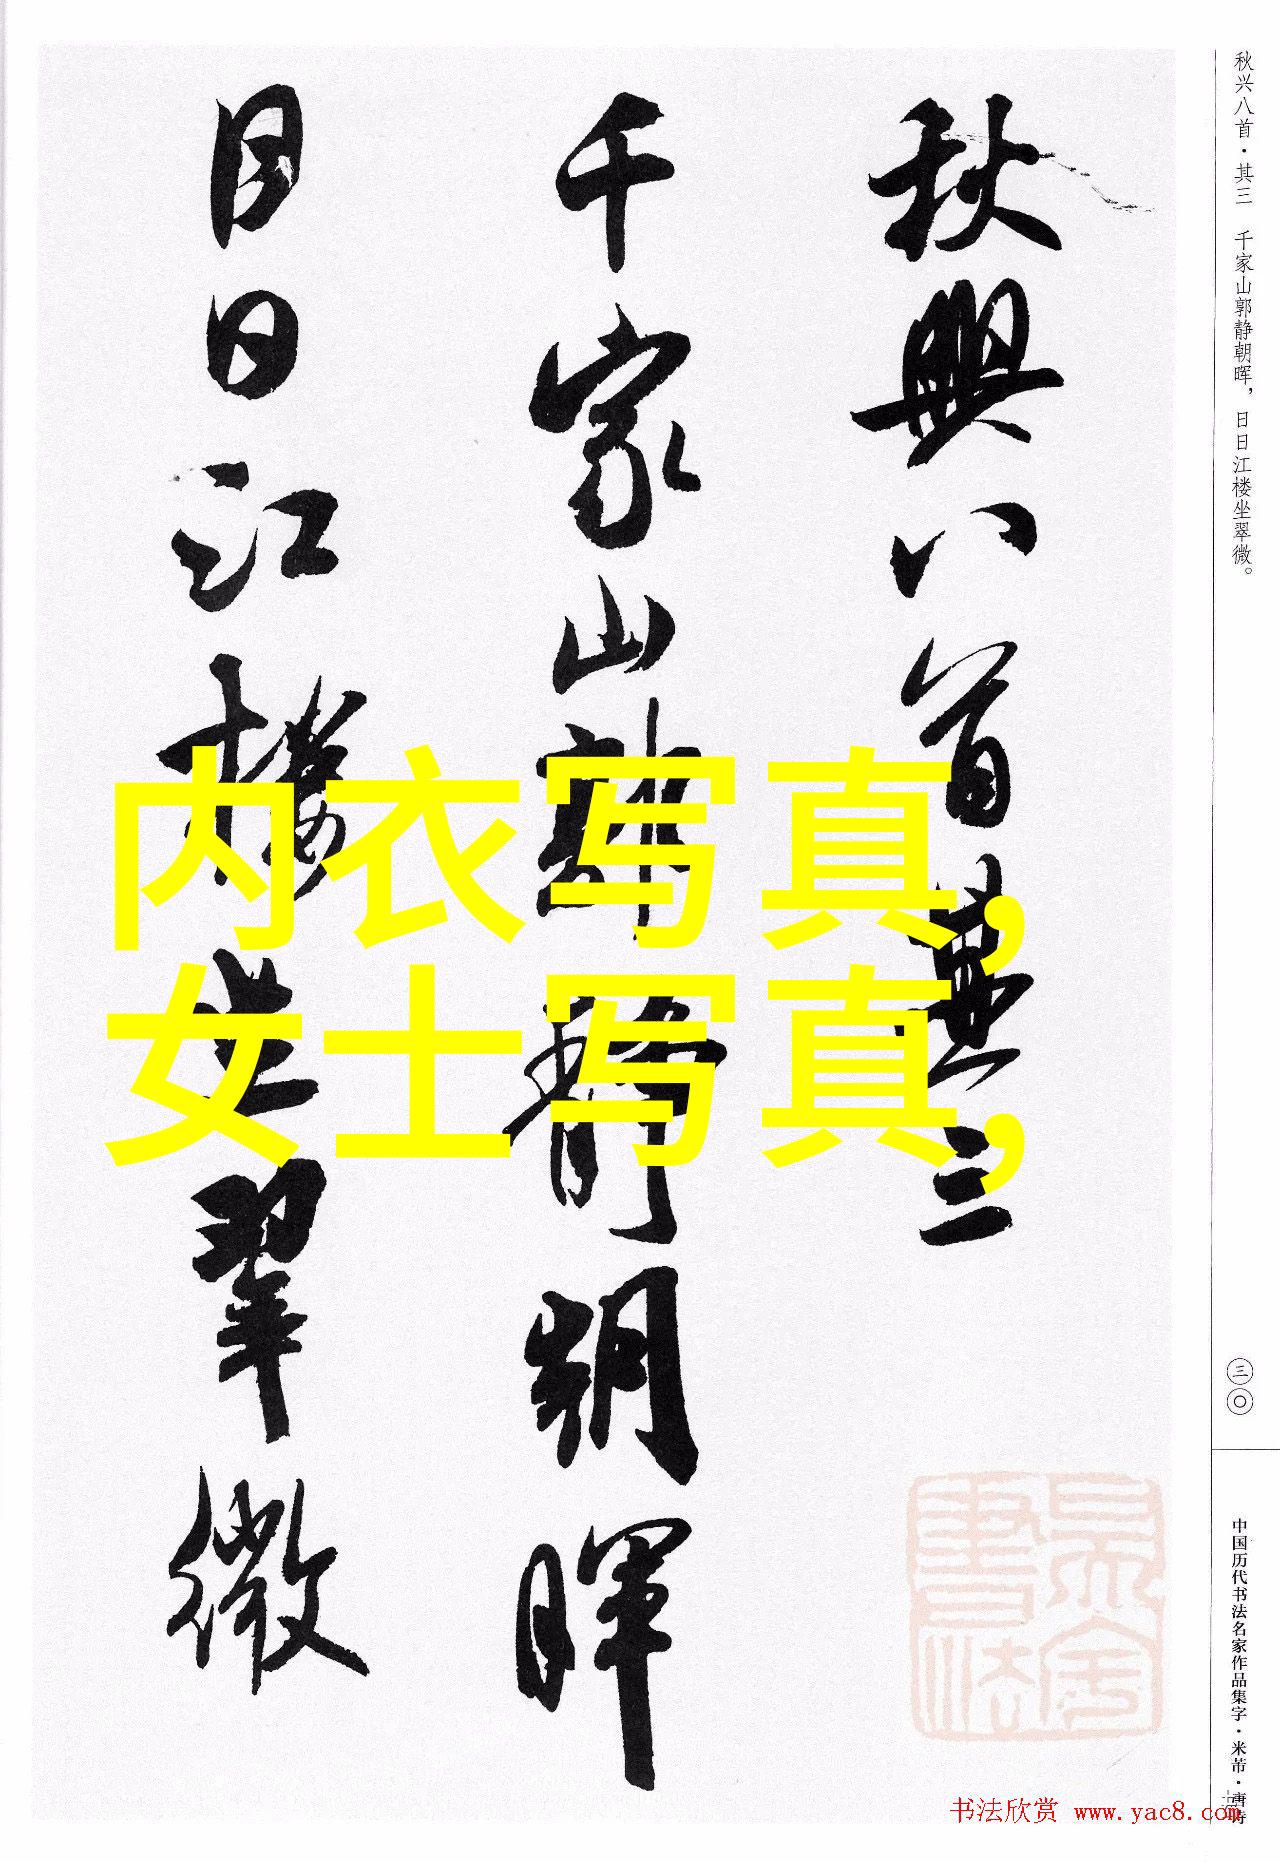 秋兴八首·其三 千家山郭静朝晖，日日江楼坐翠微。
秋興八首其三
千家山郭静朝暉
日日江樓坐翠微
内衣写真,
女士写真,
三〇
中国历代书法名家作品集字·米芾·唐诗
书法欣赏 www.yac8.com